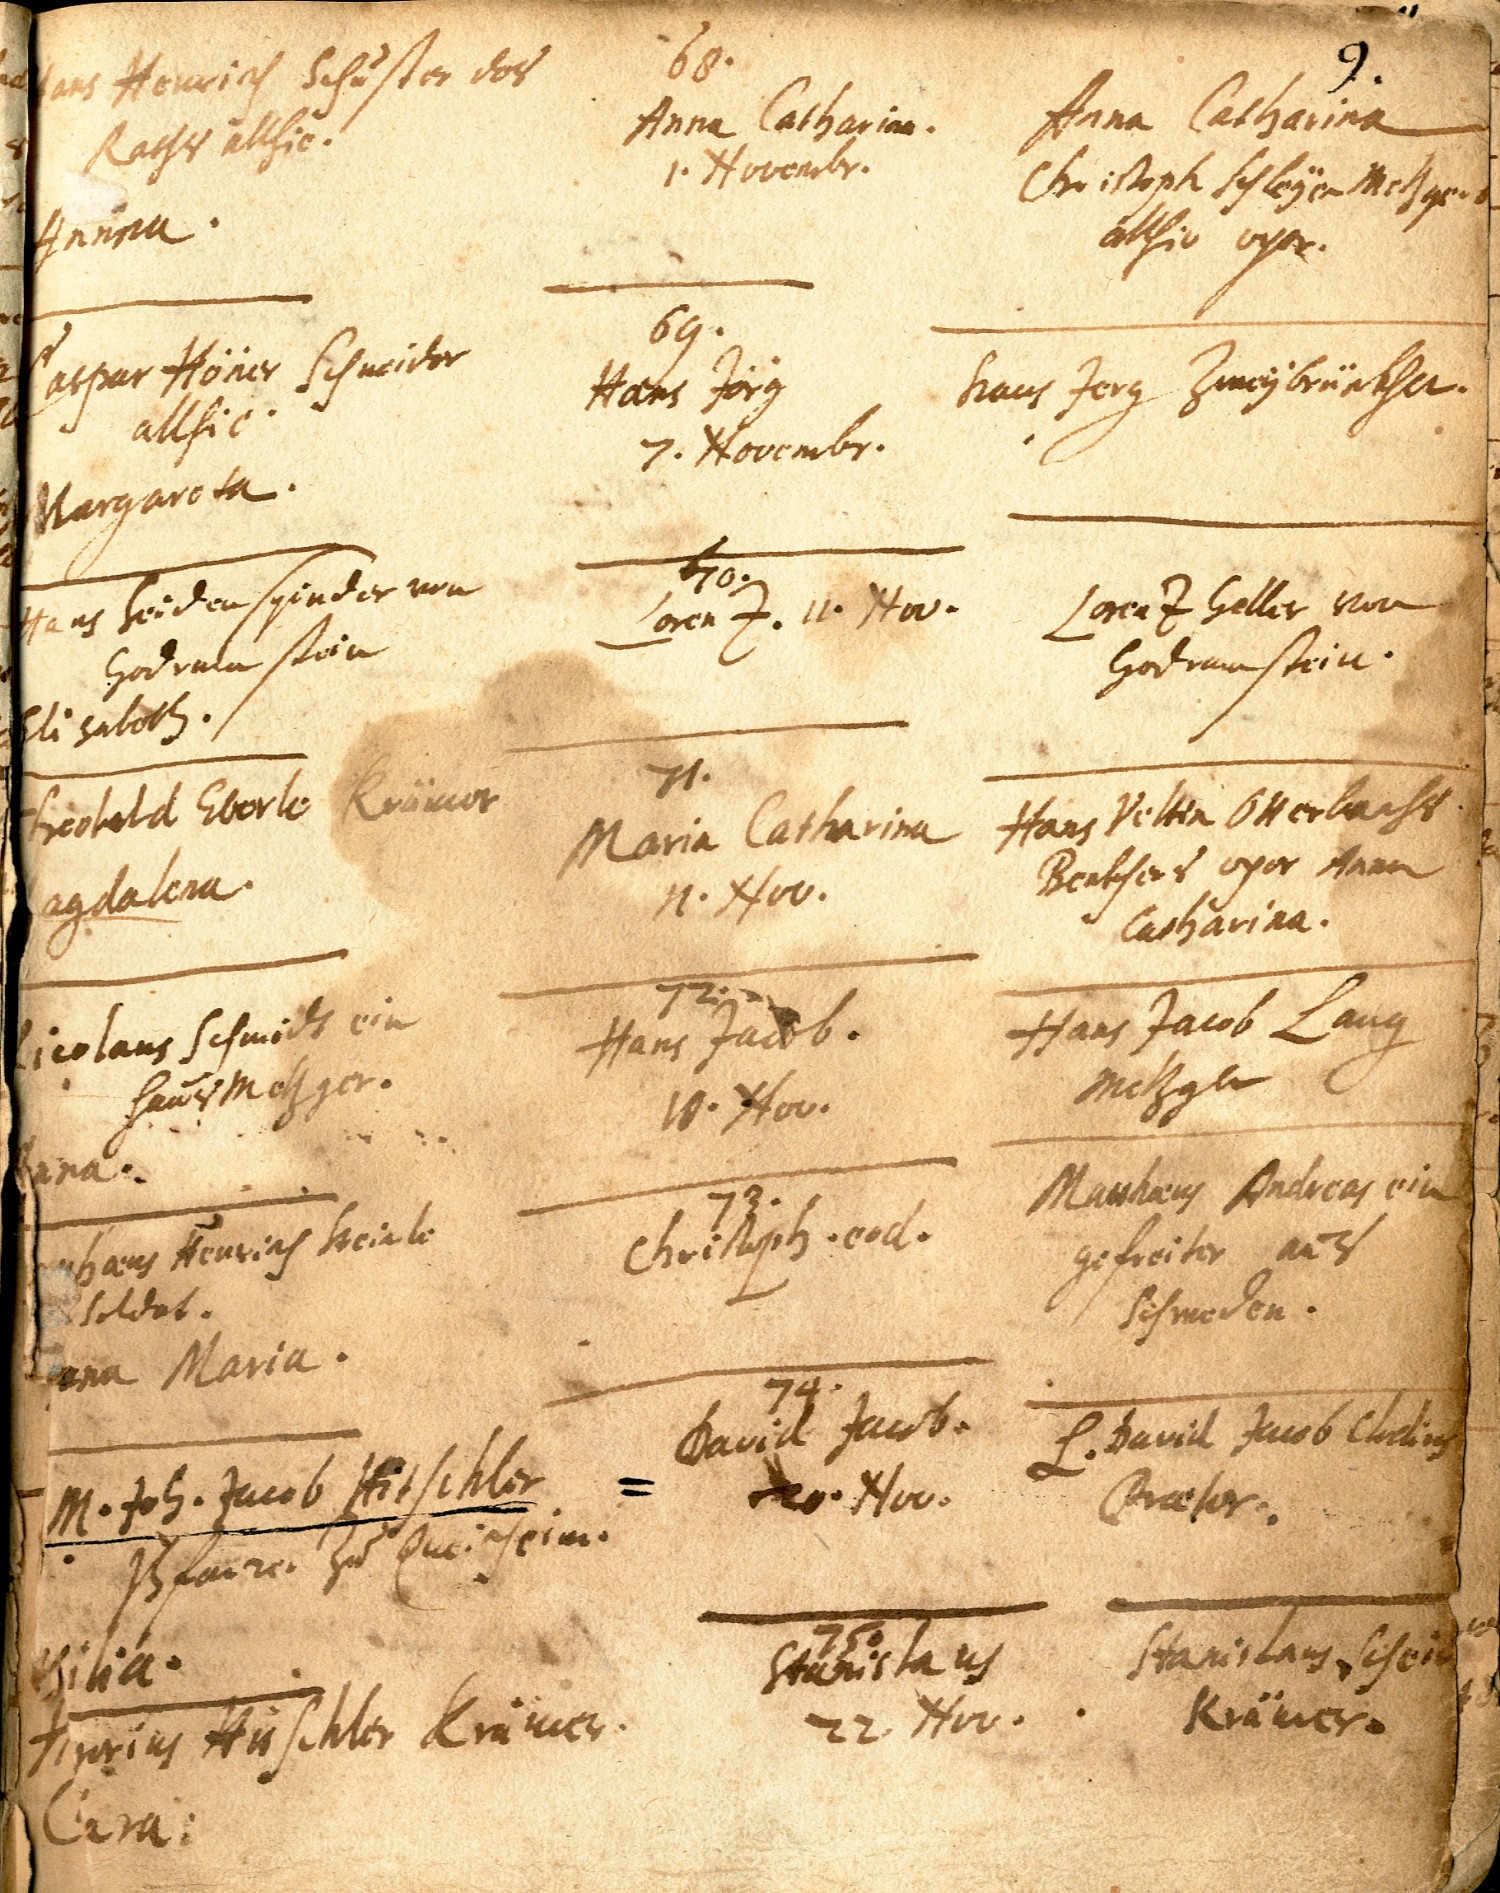 9.
Hans Henrich Schuster des
Raths allhie.
Anna.
68.
Anna Catharina.
1. Novembr.
Anna Catharina
Christoph Schleÿen Metzgers
allhie uxor.
Caspar Höner Schneider
allhie.
Margareta.
69.
Hans Jörg
7. Novembr.
Hans Jerg Zweÿbrückher.
Hans Seidenspinder von
Godramstein
Elisabeth.
70.
Lorentz. 11. Nov.
Lorentz Heller von
Godramstein.
Theobald Eberle Krämer
Magdalena.
71.
Maria Catharina
11. Nov.
Hans Veltin Otterbachs
Beckhers uxor Anna
Catharina.
Nicolaus Schmidt ein
Hausmetzger.
Anna.
72.
Hans Jacob.
18. Nov.
Hans Jacob Lang
Metzger
Henrich
Soldat.
Anna Maria.
73.
Christoph. eod.
Matthaeus Andreas ein
gefreiter aus
Schweden.
M. Joh. Jacob Hitschler
Pfarrer zu Queicheim.
74.
David Jacob.
20. Nov.
L. David Jacob Clodius
Praetor.
75.
Stanislaus
22 Nov.
Stanislaus
Krämer.
Hitschler Krämer.